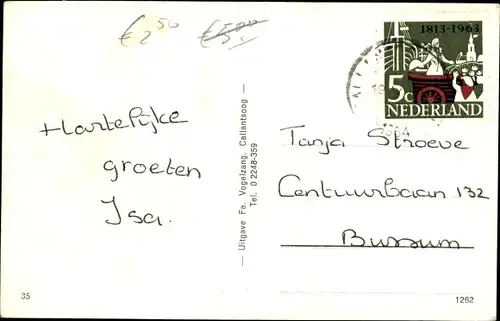 € 2 50
€ 5,--
1813-1963
5c
NEDERLAND
1964
Hartelijke
groeten
Isa.
Uitgave Fa. Vogelzang, Callantsoog
Tel. 0 2248-359
Tanja Stroeve
Centuurbaan 132
Bussum
35
1262